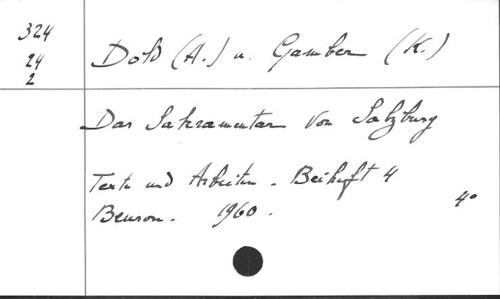 324
24
2
Dold (A.) u. Gamber (K.)
Das Sakramentar von Salzburg
Texte und Arbeiten. Beiheft 4
4°
Beuron. 1960.